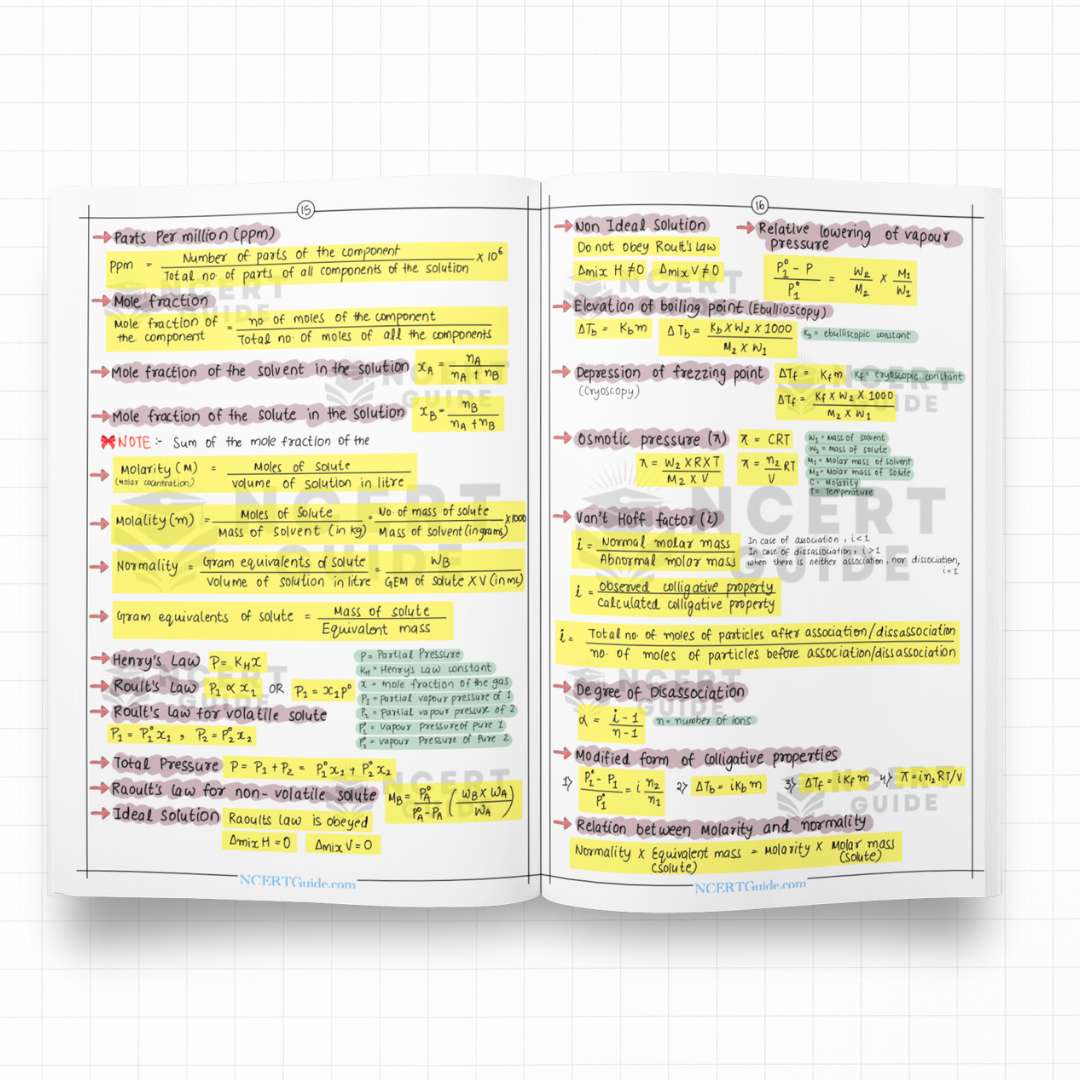 15
Parts Per million (ppm)
Ppm = Number of parts of the component / Total no of parts of all components of the solution × 10⁶
Mole fraction
Mole fraction of the component = no of moles of the component / Total no of moles of all the components
Mole fraction of the solvent in the solution xA = nA / nA + nB
Mole fraction of the solute in the solution xB = nB / nA + nB
NOTE :- Sum of the mole fraction of the
Molarity (M) = Moles of solute / volume of solution in litre
Molality (m) = Moles of Solute / Mass of solvent (in kg) = No. of mass of solute / Mass of solvent (in grams) × 1000
Normality = Gram equivalents of solute / Volume of solution in litre = WB / GEM of solute × V (in ml)
Gram equivalents of solute = Mass of solute / Equivalent mass
Henry's Law P = KHx
Roult's Law P₁ ∝ x₁ OR P₁ = x₁p⁰
Roult's law for volatile solute
P₁ = P₁⁰x₁ , P₂ = P₂⁰x₂
P = Partial Pressure
KH = Henry's Law constant
x = mole fraction of the gas
P₁ = partial vapour pressure of 1
P₂ = partial vapour pressure of 2
P₁⁰ = vapour pressure of pure 1
P₂⁰ = vapour Pressure of Pure 2
Total Pressure P = P₁ + P₂ = P₁⁰x₁ + P₂⁰x₂
Raoult's law for non-volatile solute MB = PA⁰ / PA⁰ - PA (WB × WA / WA)
Ideal solution Raoults law is obeyed
Δmix H = 0 Δmix V = 0
NCERTGuide.com
16
Non Ideal Solution
Do not obey Roult's Law
Δmix H ≠ 0 Δmix V ≠ 0
Relative lowering of vapour
pressure
P₁⁰ - P / P₁⁰ = W₂ / M₂ × M₁ / W₁
Elevation of boiling point (Ebullioscopy)
ΔTb = Kbm ΔTb = Kb × W₂ × 1000 / M₂ × W₁ Kb = ebullioscopic constant
Depression of frezzing point ΔTf = Kfm Kf = cryoscopic constant
(Cryoscopy)
ΔTf = Kf × W₂ × 1000 / M₂ × W₁
Osmotic pressure (π) π = CRT
π = W₂ × R × T / M₂ × V π = n₂ / V RT
W₁ = Mass of solvent
W₂ = mass of solute
M₁ = Molar mass of solvent
M₂ = Molar mass of solute
C = Molarity
T = Temperature
Van't Hoff factor (i)
i = Normal molar mass / Abnormal molar mass
In case of association , i < 1
In case of dissassociation, i > 1
when there is neither association, nor dissociation,
i = 1
i = observed colligative property / Calculated colligative property
i = Total no. of moles of particles after association/dissassociation / no. of moles of particles before association/dissassociation
Degree of Disassociation
α = i - 1 / n - 1 n = number of ions
Modified form of colligative properties
1) P₁⁰ - P₁ / P₁⁰ = i n₂ / n₁ 2) ΔTb = iKbm 3) ΔTf = iKfm 4) π = in₂RT/V
Relation between Molarity and normality
Normality × Equivalent mass = Molarity × Molar mass
(solute) (solute)
NCERTGuide.com
NCERT GUIDE